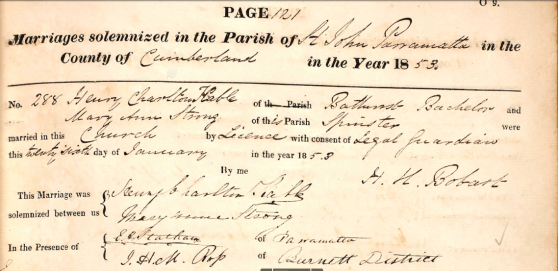 O 9.
PAGE 121
Marriages solemnized in the Parish of St John Parramatta in the
County of Cumberland in the Year 1853.
No. 288 Henry Charlton Kable of th Parish Bathurst Bachelor and
Mary Ann Strong of this Parish Spinster were
married in this Church by Licence with consent of Legal Guardian
this twenty sixth day of January in the year 1853
By me H. H. Bobart
This Marriage was { Henry Charlton Kable
solemnized between us { Mary Anne Strong
In the Presence of { of Parramatta
J. H. M. of Burnett District